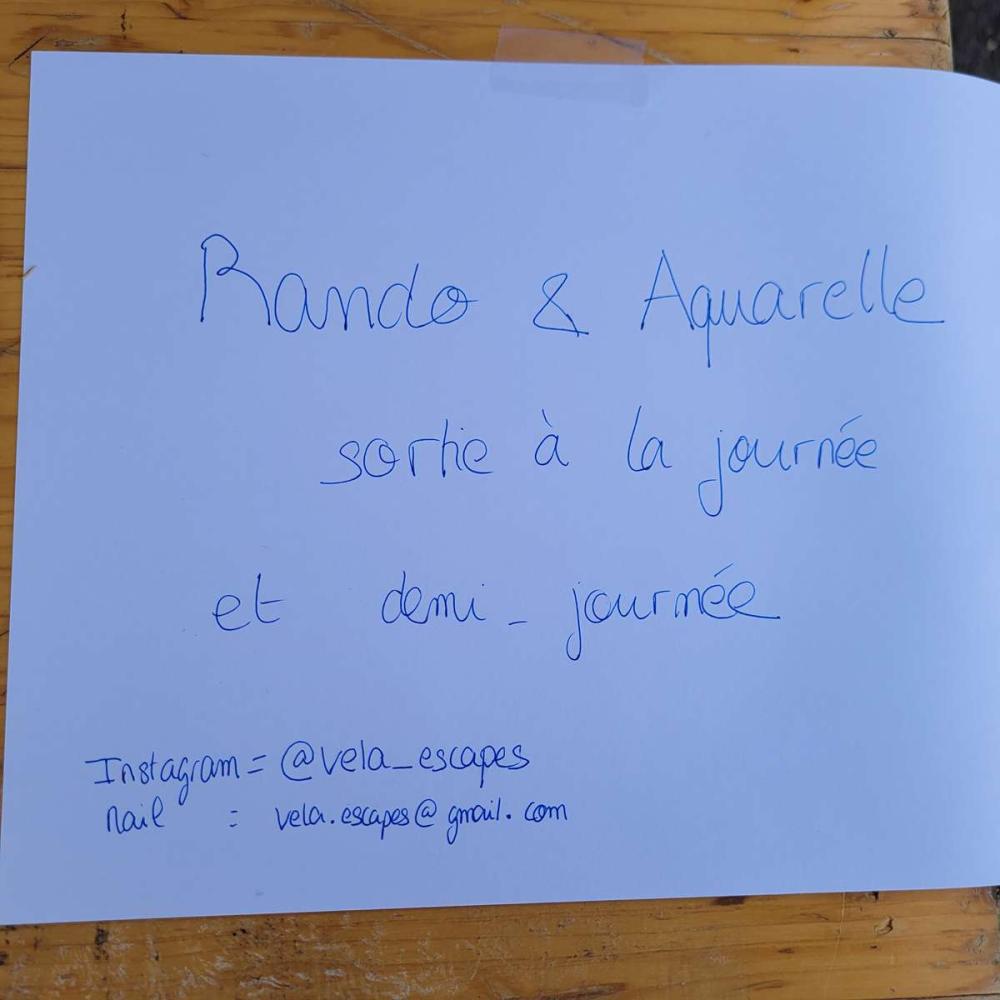 Rando & Aquarelle
sortie à la journée
et demi-journée
Instagram = @vela_escapes
Mail : vela.escapes@gmail.com